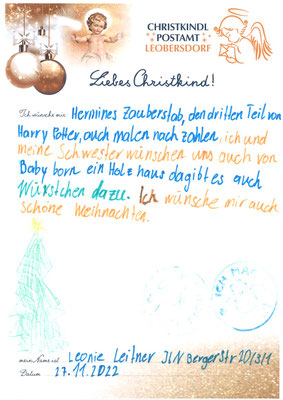 CHRISTKINDL
POSTAMT
LEOBERSDORF
Liebes Christkind!
Ich wünsche mir Hermines Zauberstab, den dritten Teil von
Harry Potter, auch malen nach zahlen, ich und
meine Schwester wünschen uns auch von
Baby born ein Holzhaus da gibt es auch
Würstchen dazu. Ich wünsche mir auch
schöne Weihnachten.
mein Name ist Leonie Leitner Bergerstr 20/3/1
Datum 27.11.2022